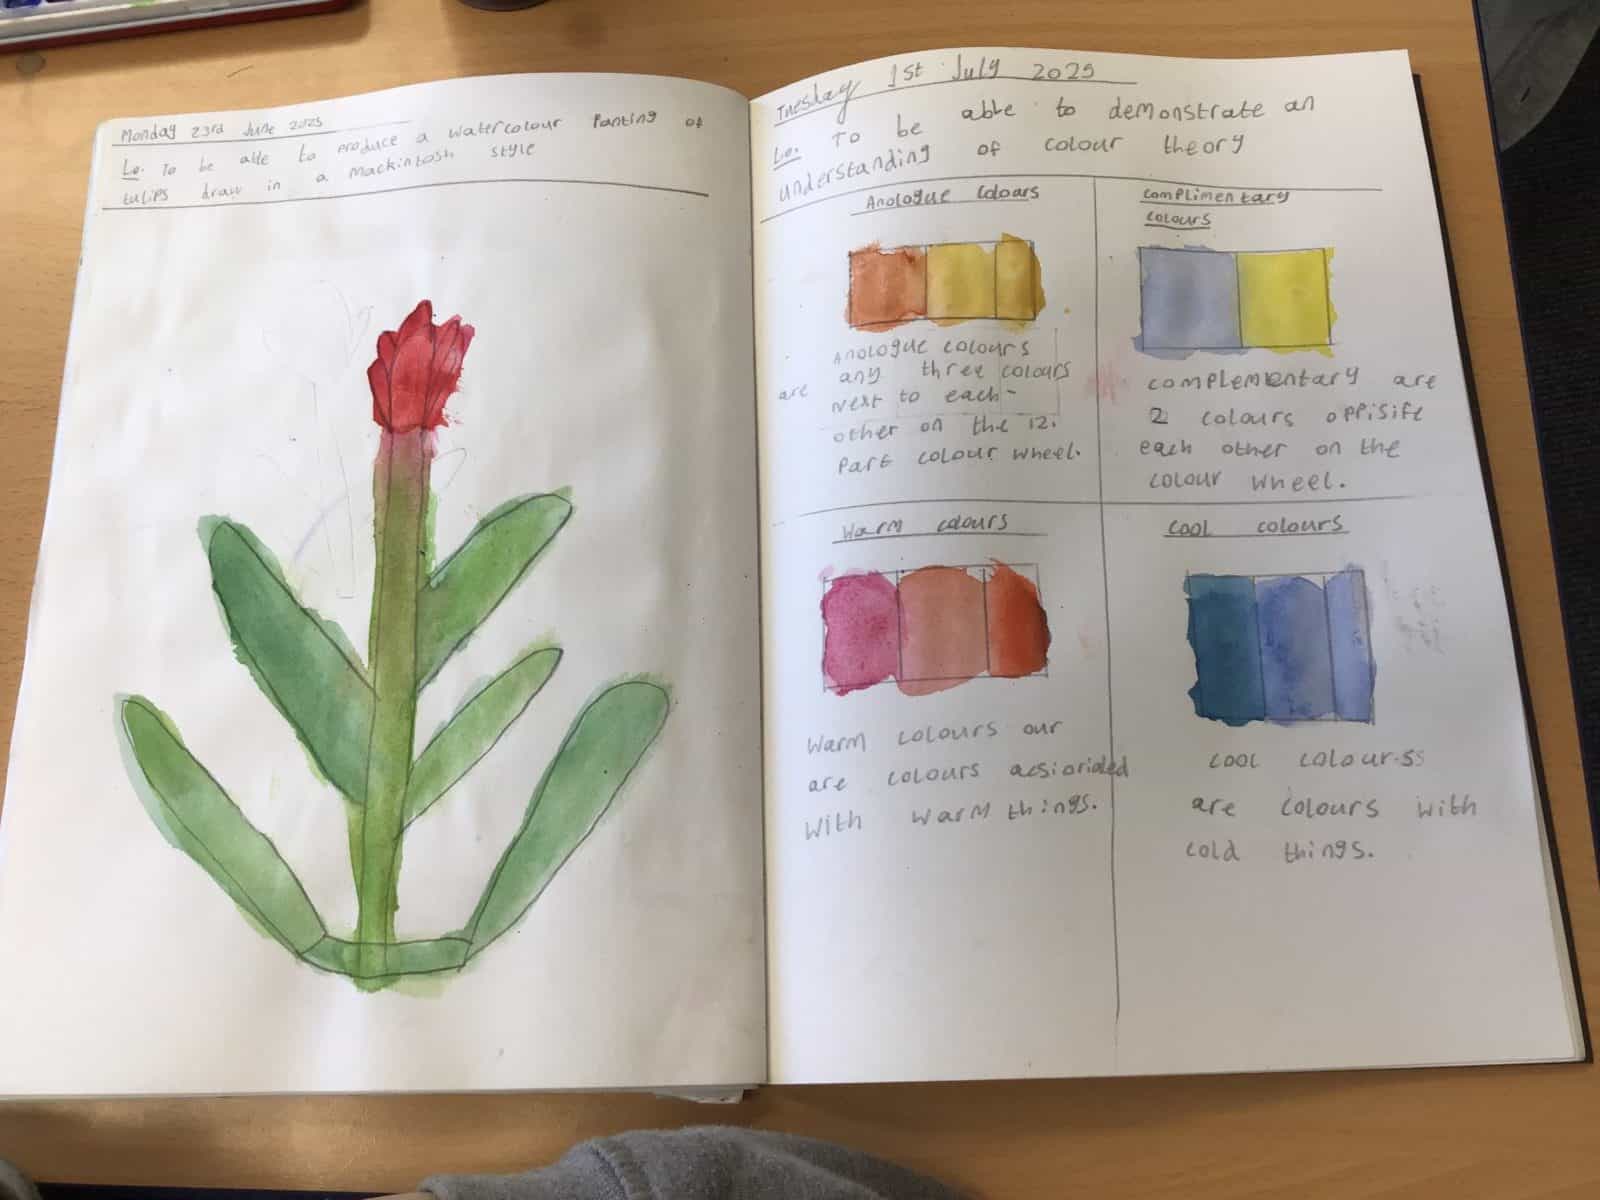 Monday 23rd June 2025
Lo. To be able to produce a watercolour Panting of
tulips draw in a Mackintosh style
Tuesday 1st July 2025
Lo. To be able to demonstrate an
understanding of colour theory
Anologue Colours
Anologue colours
are any three colours
Next to each-
other on the 12.
Part colour wheel.
Complimentary
colours
complementary are
2 colours oppisite
each other on the
colour wheel.
Warm colours
Warm colours our
are colours
with warm things.
cool colours
cool colour.ss
are colours with
cold things.